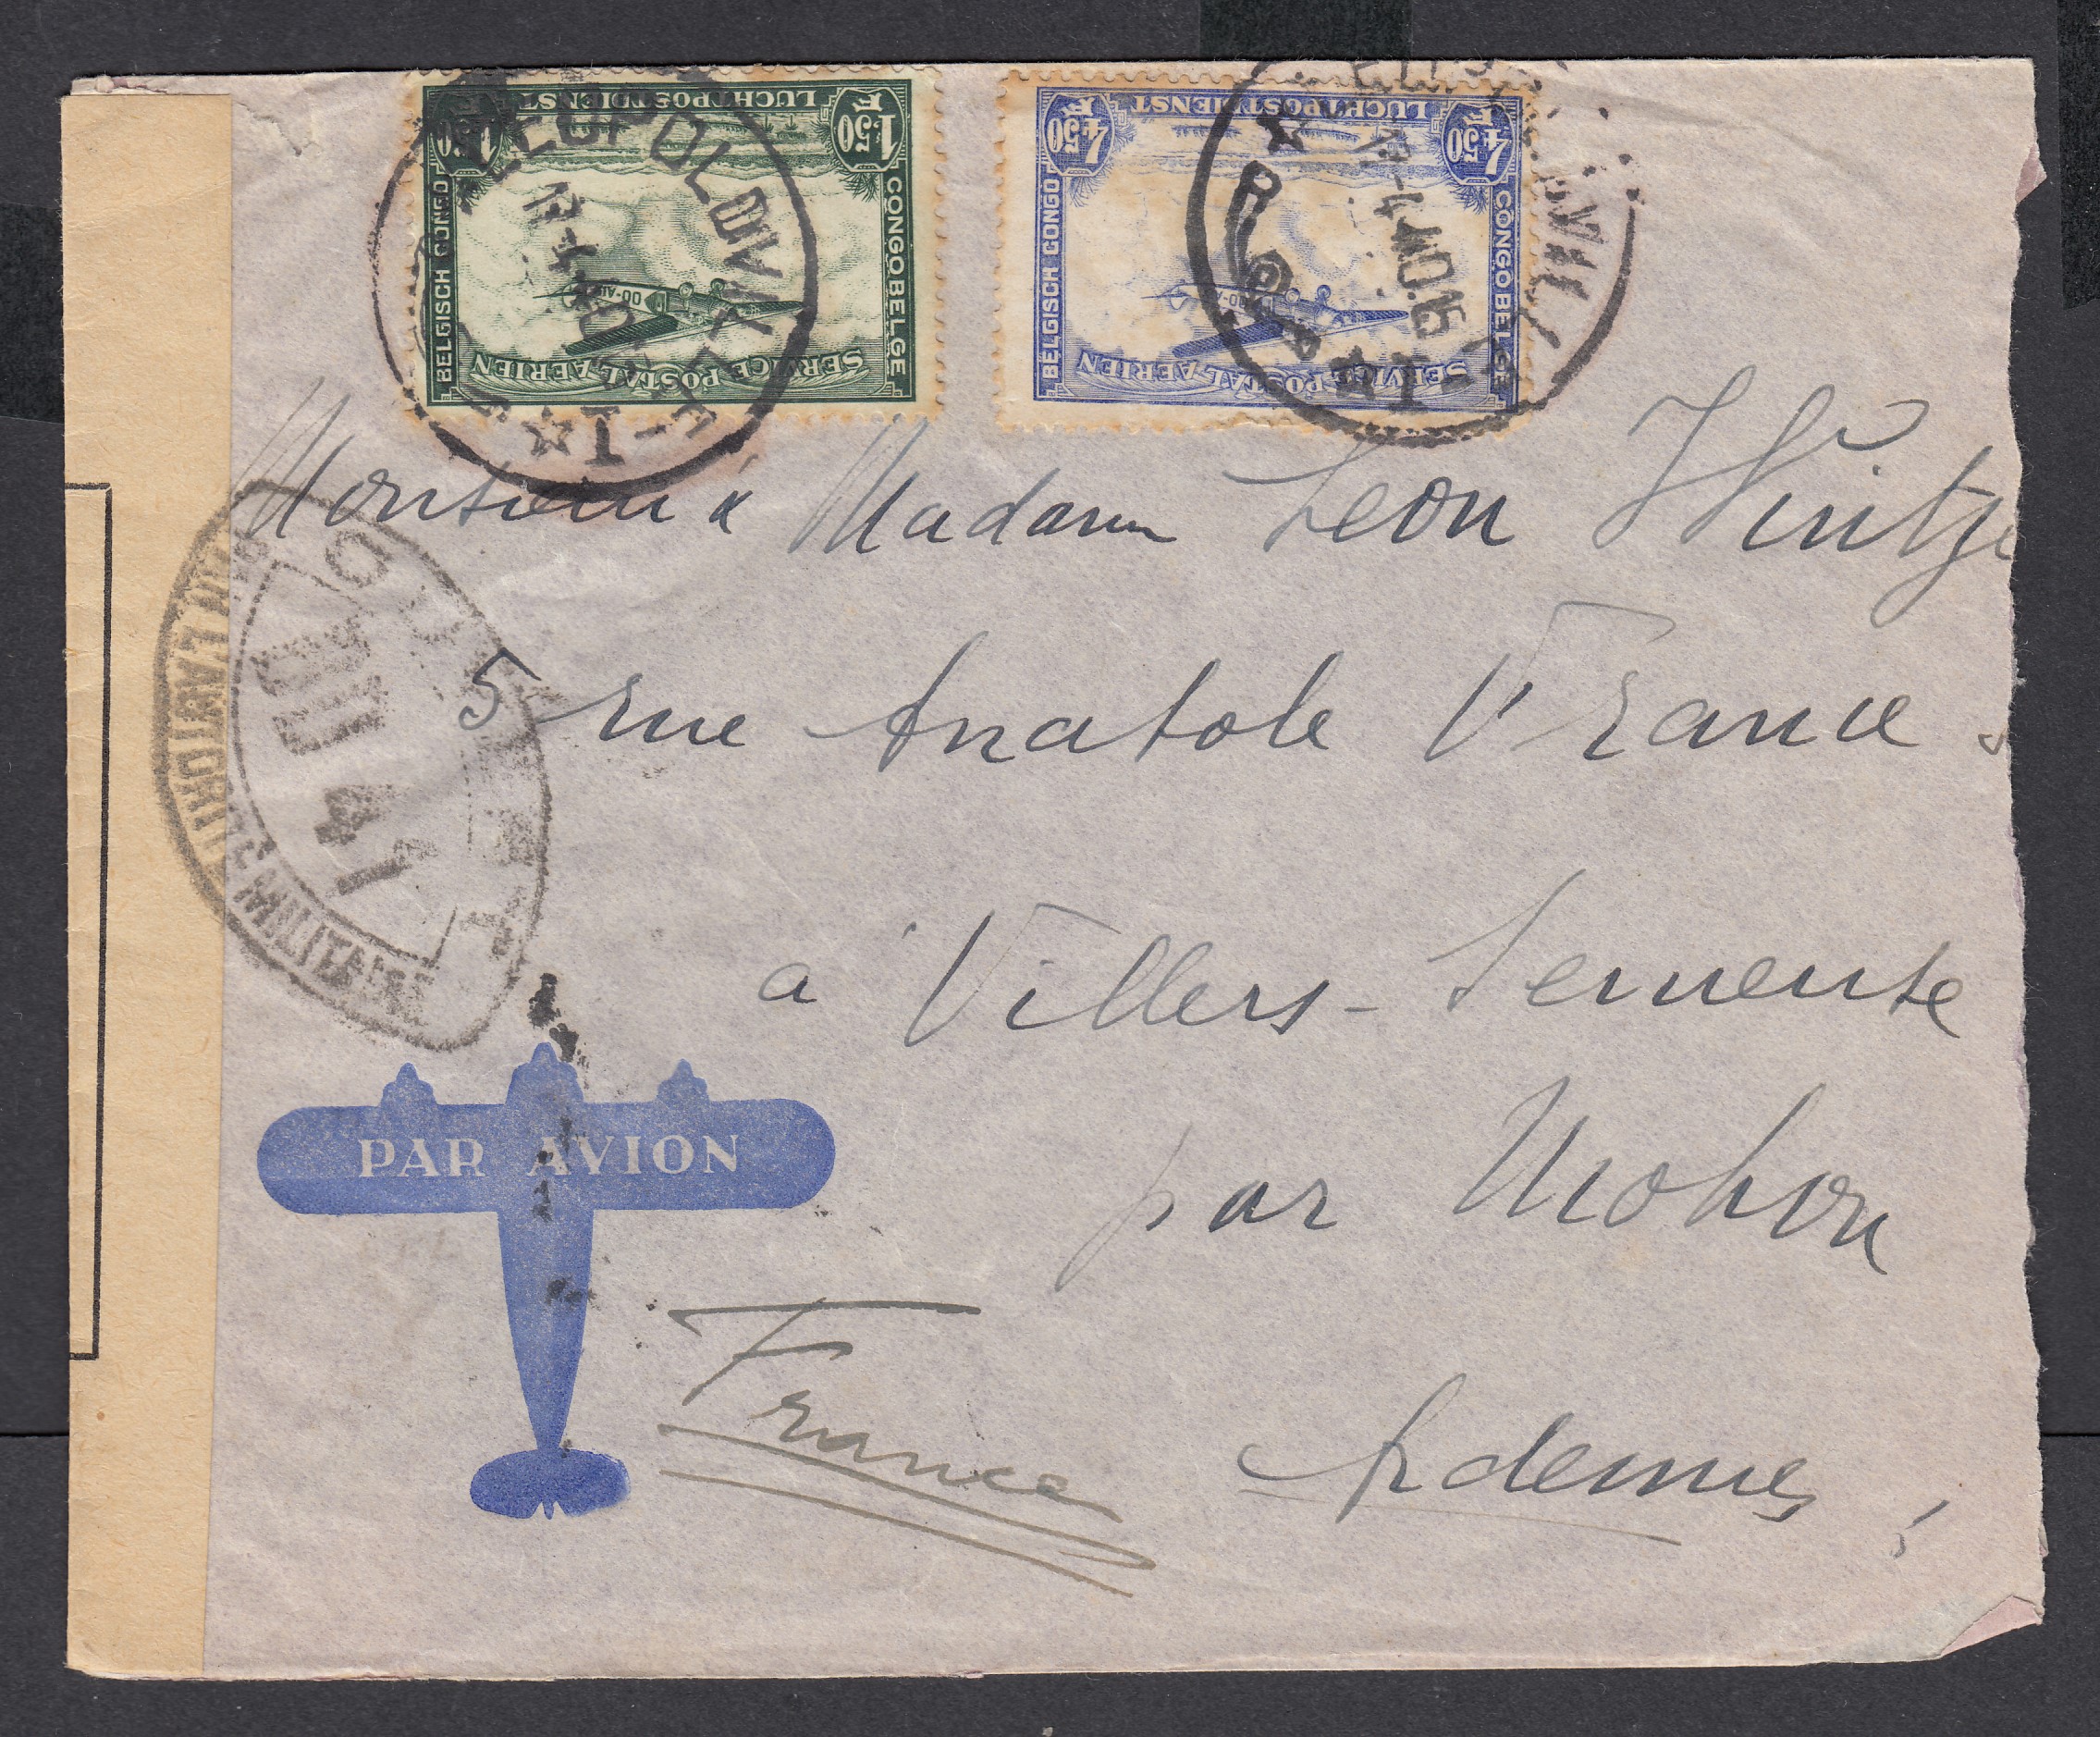 1F50 LUCHTPOSTDIENST 1F50
BELGISCH CONGO
CONGO BELGE
OO-A
SERVICE POSTAL AERIEN
LEOPOLDVILLE
4F50 LUCHTPOSTDIENST 4F50
BELGISCH CONGO
CONGO BELGE
OO-A
SERVICE POSTAL AERIEN
Monsieur & Madame Leon
5 rue Anatole France
a Villers-Semeuse
par Mohon
France Ardennes
OUVERT
PAR L'AUTORITÉ MILITAIRE
PAR AVION